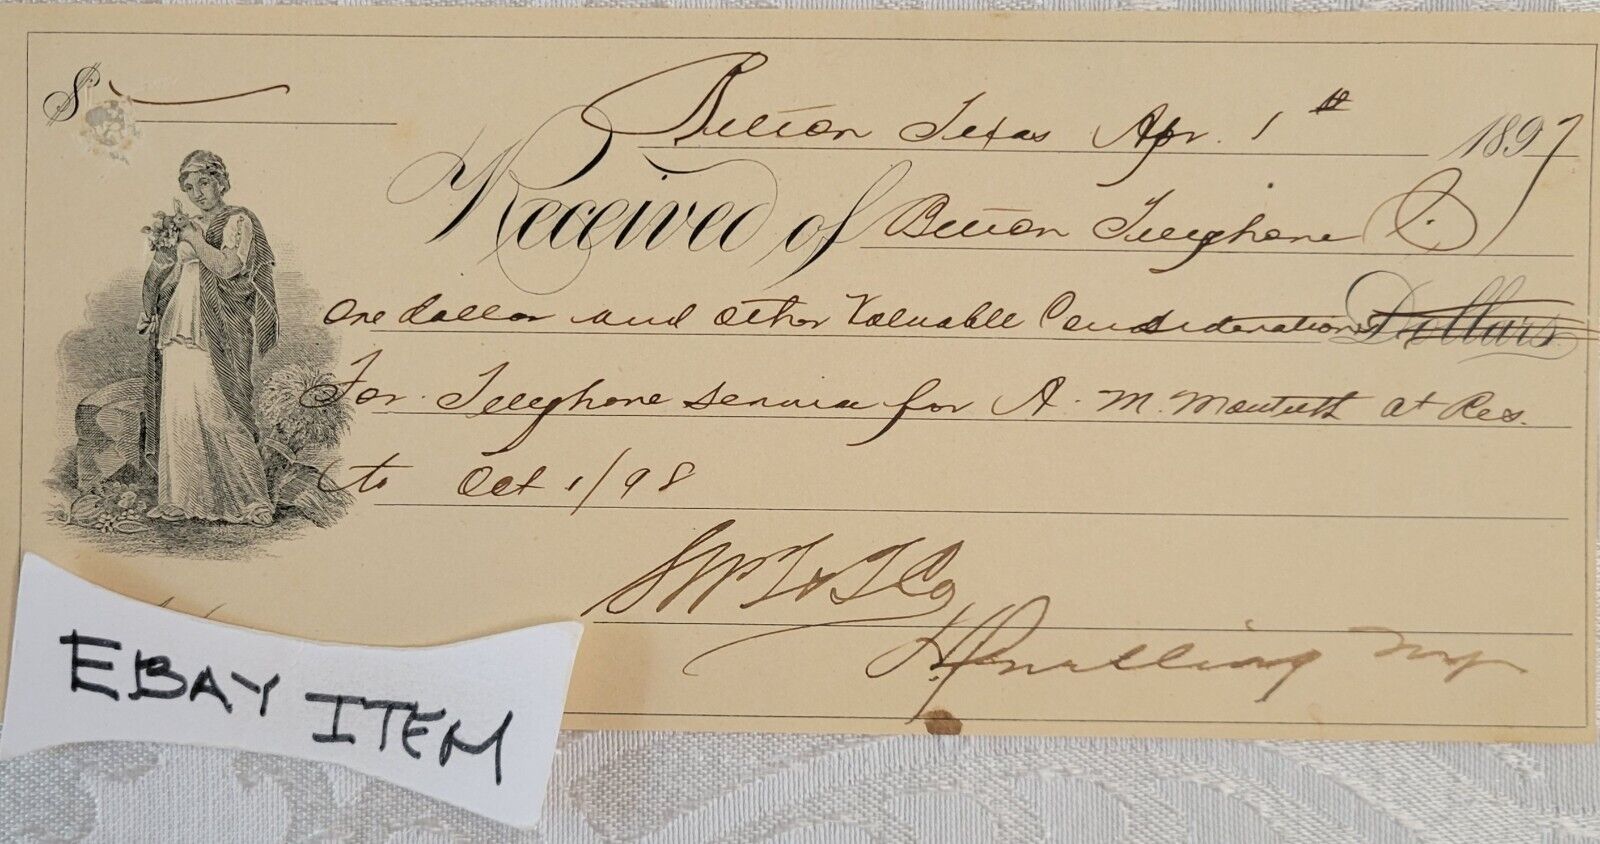 $
Belton Texas Apr. 1st 1897
Received of Belton Telephone Co.
One dollar and other Valuable Considerations Dollars
For Telephone service for A. M. Monteith at Res.
to Oct 1/98
SWT&TCo
Mgr
EBAY ITEM